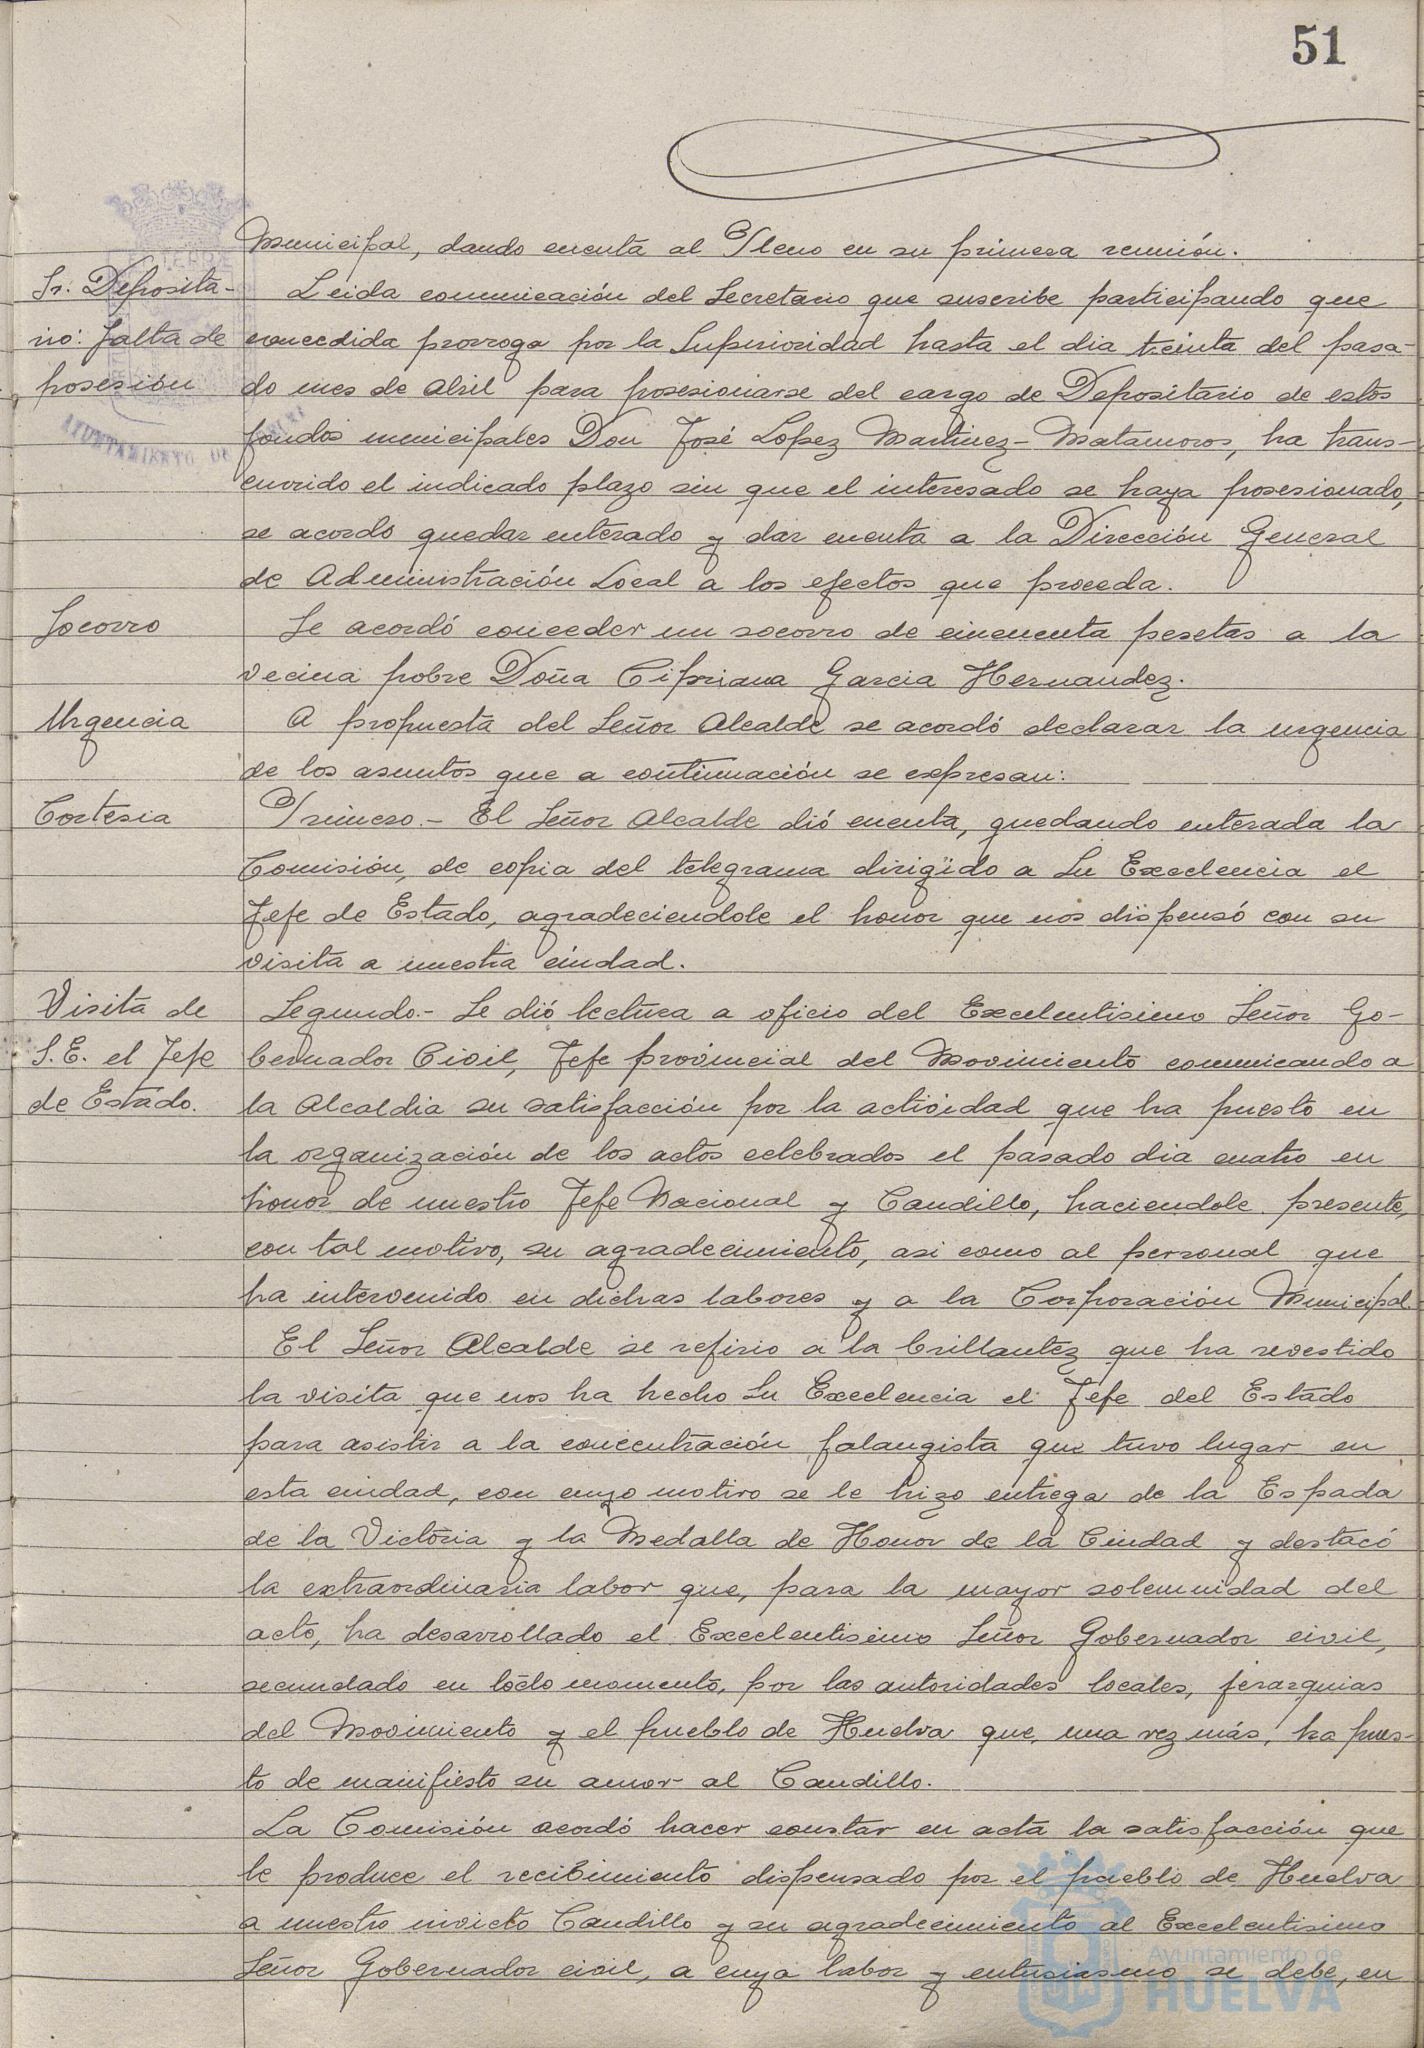 51
Municipal, dando cuenta al Pleno en su primera reunión.
Sr. Deposita-
rio: falta de
posesión
Leida comunicación del Secretario que suscribe participando que
concedida prorroga por la Superioridad hasta el dia treinta del pasa-
do mes de Abril para posesionarse del cargo de Depositario de estos
fondos municipales Don José Lopez Martinez-Matamoros, ha trans-
currido el indicado plazo sin que el interesado se haya posesionado,
se acordó quedar enterado y dar cuenta a la Dirección General
de Administración Local a los efectos que proceda.
Socorro
Se acordó conceder un socorro de cincuenta pesetas a la
vecina pobre Doña Cipriana Garcia Hernandez.
Urgencia
A propuesta del Señor Alcalde se acordó declarar la urgencia
de los asuntos que a continuación se expresan:
Cortesia
Primero.- El Señor Alcalde dió cuenta, quedando enterada la
Comisión, de copia del telegrama dirigido a Su Excelencia el
Jefe de Estado, agradeciendole el honor que nos dispensó con su
visita a nuestra ciudad.
Visita de
S.E. el Jefe
de Estado.
Segundo.- Se dió lectura a oficio del Excelentisimo Señor Go-
bernador Civil, Jefe provincial del Movimiento comunicando a
la Alcaldia su satisfacción por la actividad que ha puesto en
la organización de los actos celebrados el pasado dia cuatro en
honor de nuestro Jefe Nacional y Caudillo, haciendole presente,
con tal motivo, su agradecimiento, asi como al personal que
ha intervenido en dichas labores y a la Corporación Municipal.
El Señor Alcalde se refirio a la brillantez que ha revestido
la visita que nos ha hecho Su Excelencia el Jefe del Estado
para asistir a la concentración falangista que tuvo lugar en
esta ciudad, con cuyo motivo se le hizo entrega de la Espada
de la Victoria y la Medalla de Honor de la Ciudad y destacó
la extraordinaria labor que, para la mayor solemnidad del
acto, ha desarrollado el Excelentisimo Señor Gobernador civil,
secundado en todo momento, por las autoridades locales, jerarquias
del Movimiento y el pueblo de Huelva que, una vez más, ha pues-
to de manifiesto su amor al Caudillo.
La Comisión acordó hacer constar en acta la satisfacción que
le produce el recibimiento dispensado por el pueblo de Huelva
a nuestro invicto Caudillo y su agradecimiento al Excelentisimo
Señor Gobernador civil, a cuya labor y entusiasmo se debe, en
AYUNTAMIENTO DE
Ayuntamiento de
HUELVA